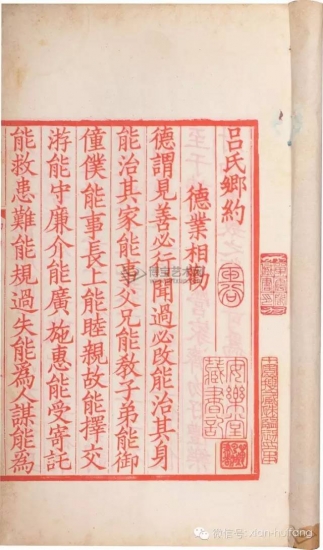 吕氏鄉約
德業相勸
德謂見善必行聞過必改能治其身
能治其家能事父兄能敎子弟能御
僮僕能事長上能睦親故能擇交
游能守廉介能廣施惠能受寄託
能救患難能規過失能爲人謀能爲
安樂堂
藏書記
微信号: xian-huifang